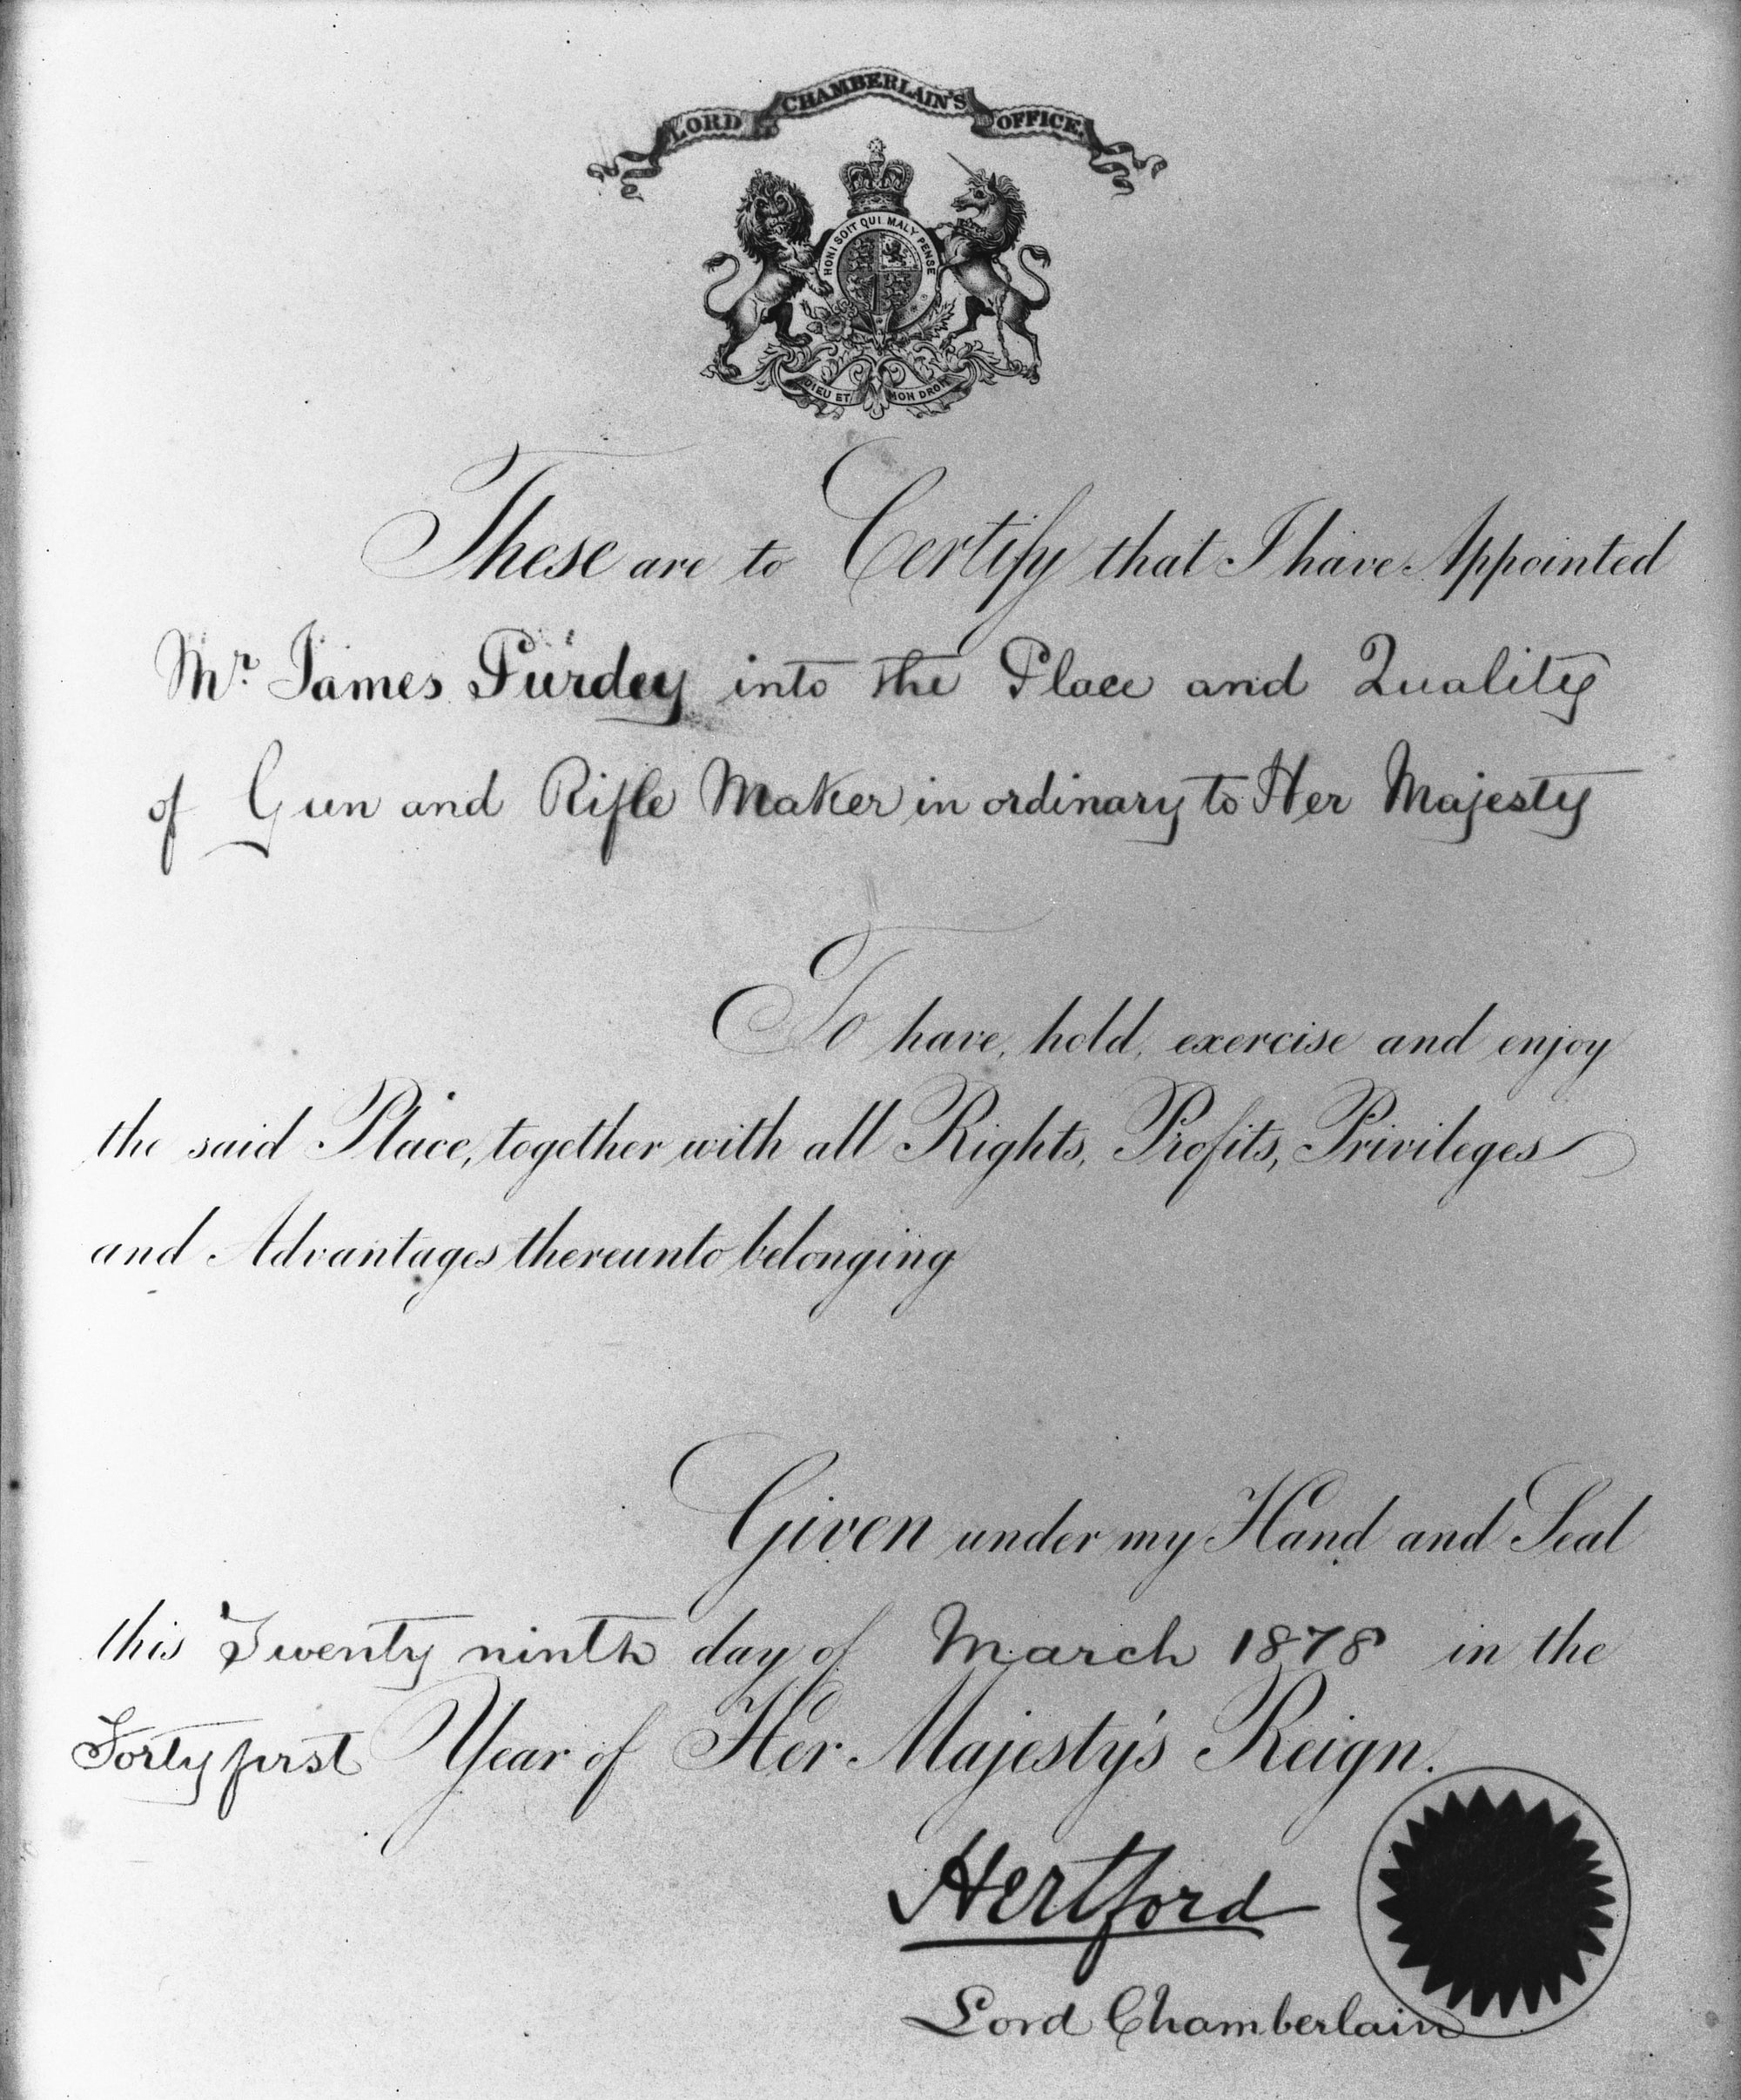 LORD CHAMBERLAIN'S OFFICE.
HONI SOIT QUI MAL Y PENSE
DIEU ET MON DROIT
These are to Certify that I have Appointed
Mr. James Purdey into the Place and Quality
of Gun and Rifle Maker in ordinary to Her Majesty
To have, hold, exercise and enjoy
the said Place, together with all Rights, Profits, Privileges
and Advantages thereunto belonging
Given under my Hand and Seal
this Twenty ninth day of March 1878 in the
Forty first Year of Her Majesty's Reign.
Hertford
Lord Chamberlain